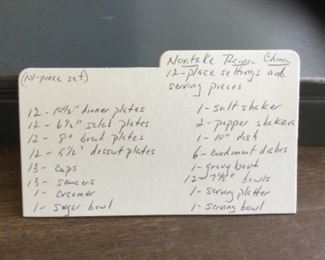 (101-piece set)
12 - 10½" dinner plates
12 - 6½" salad plates
12 - 8" bread plates
12 - 5½" dessert plates
13 - cups
13 - saucers
1 - creamer
1 - sugar bowl
Noritake China
12-place settings and
serving pieces
1 - salt shaker
2 - pepper shakers
1 - 10" dish
6 - condiment dishes
1 - gravy boat
12 - 7½" bowls
1 - serving platter
1 - serving bowl